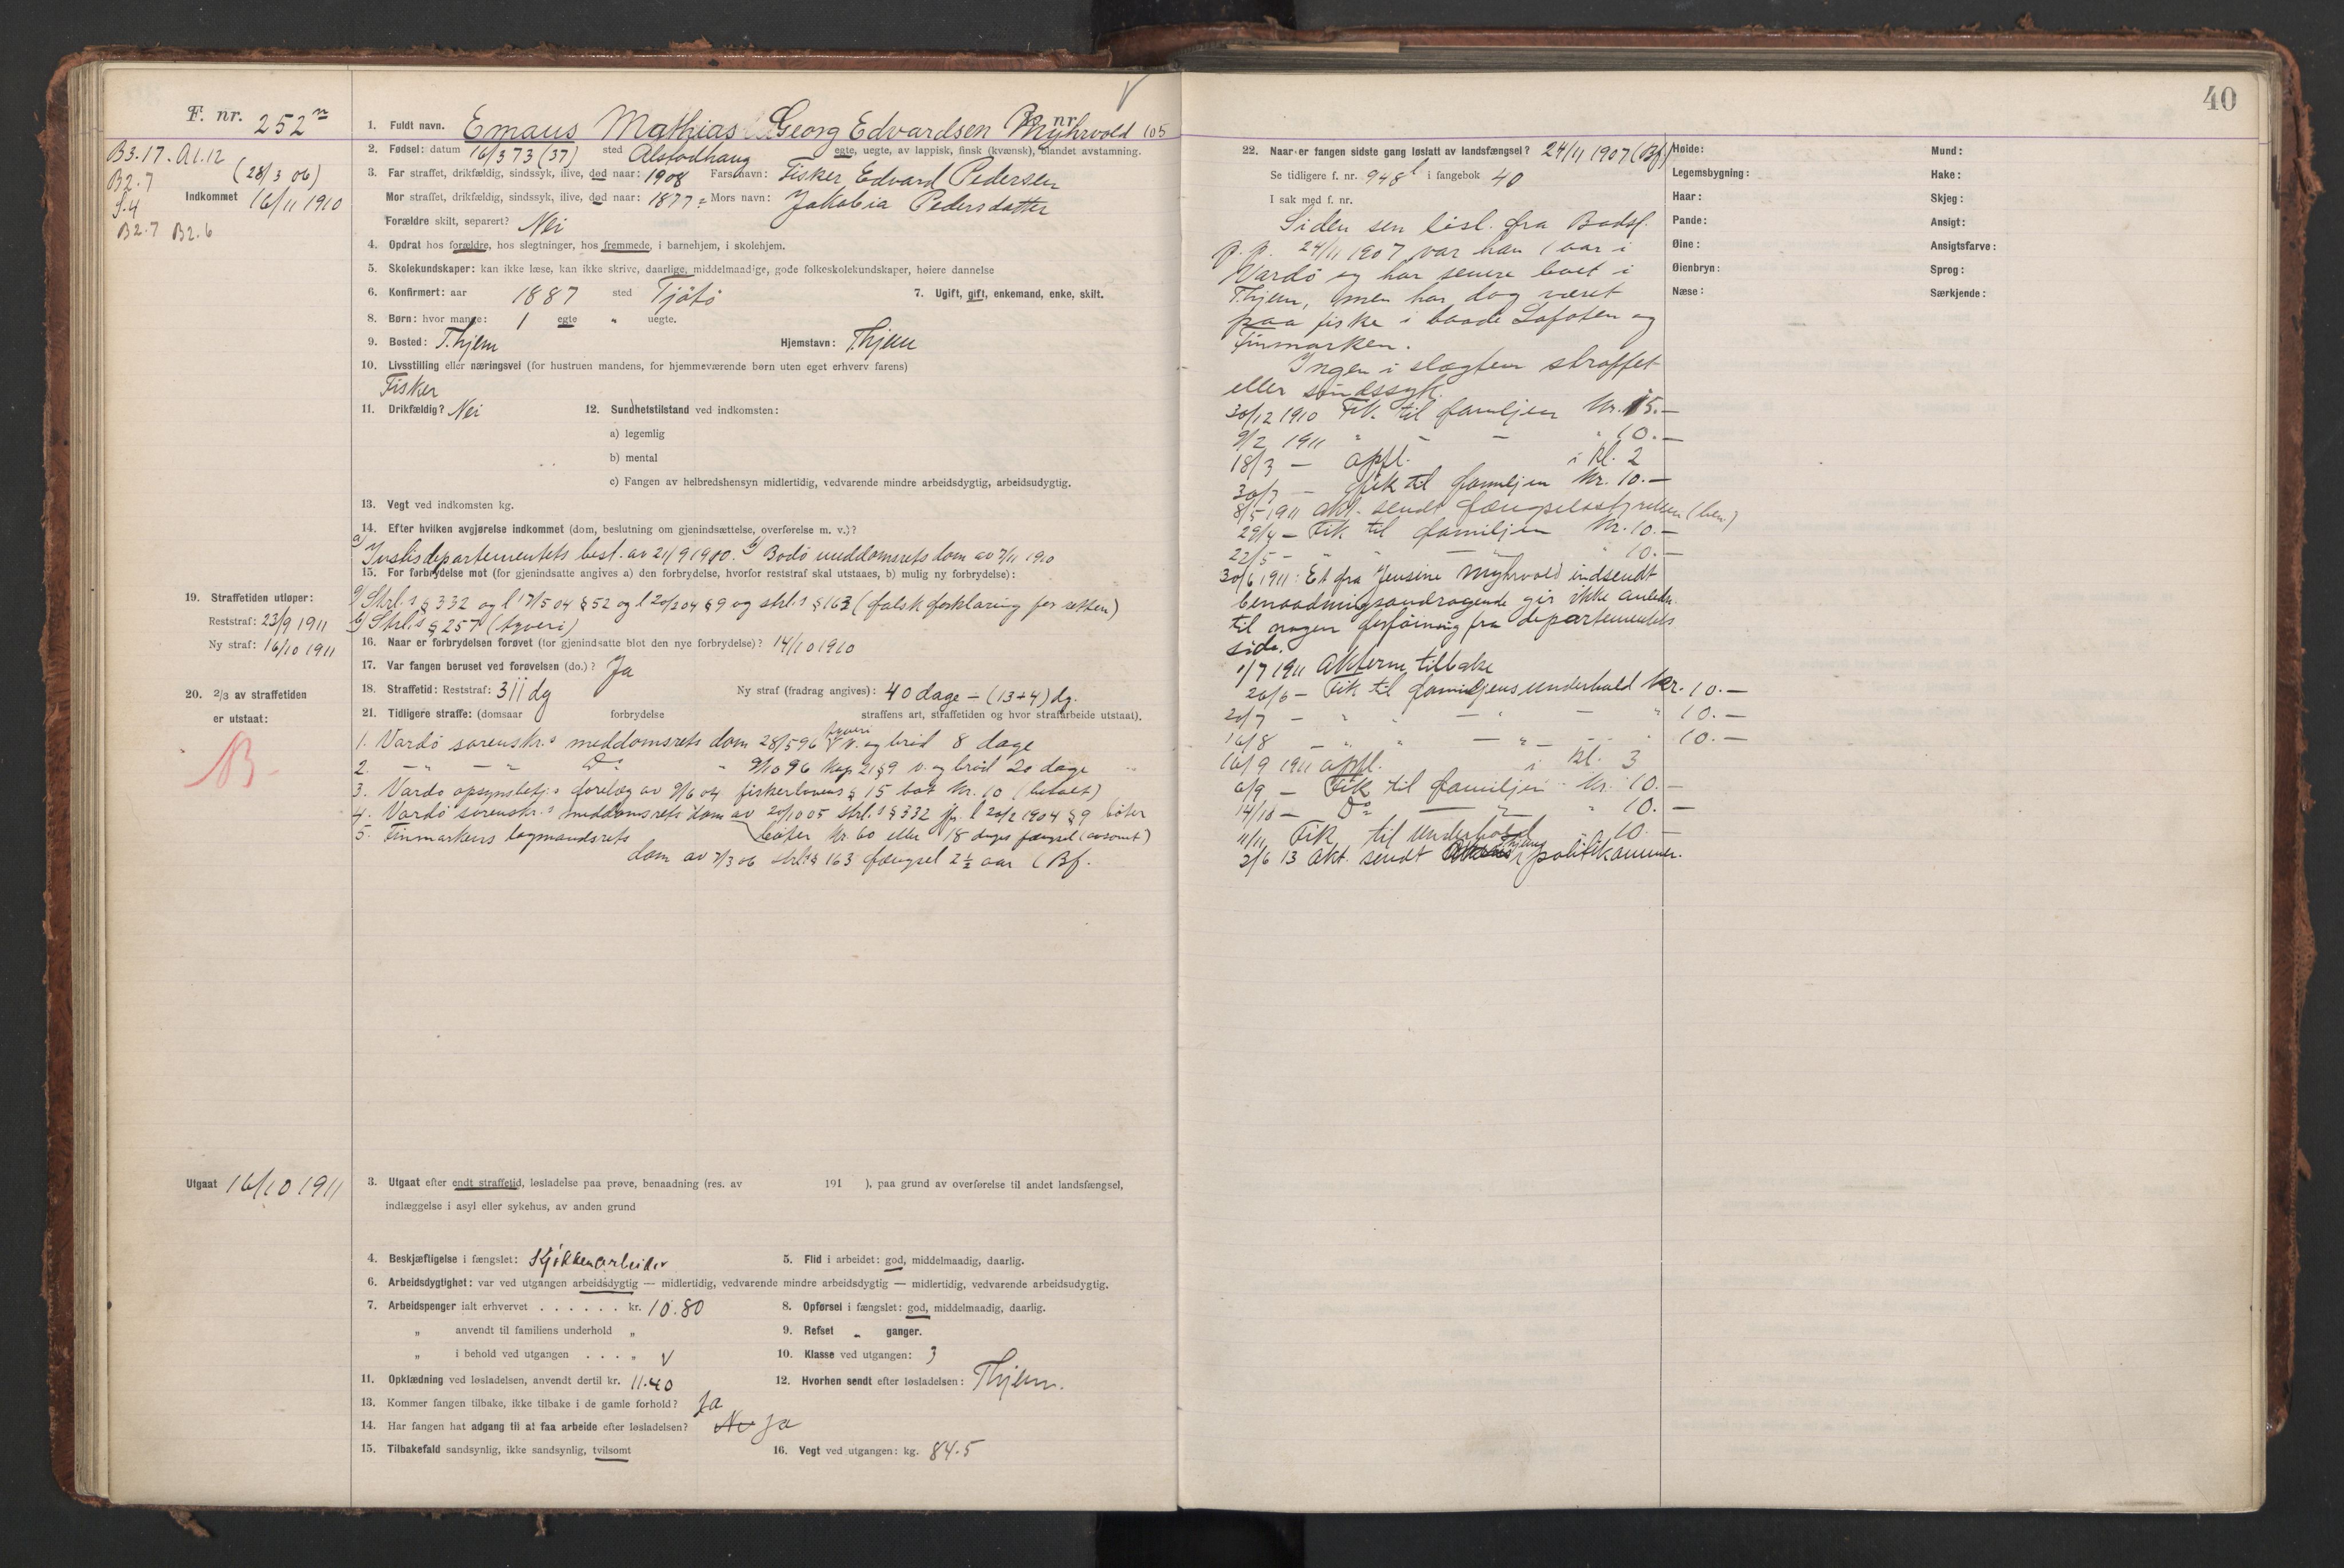 F. nr. 252 n
B3.17. A1.12
B2.7 (28/3 06)
S.4
B2.7 B2.6
Indkommet 16/11 1910
1. Fuldt navn. Emaus Mathias Georg Edvardsen Myhrvold B. nr. 105
2. Fødsel: datum 16/3 73 (37) sted Alstadhaug egte, uegte, av lappisk, finsk (kvænsk), blandet avstamning.
3. Far straffet, drikfældig, sindssyk, ilive, død naar: 1908 Fars navn: Fisker Edvard Pedersen
Mor straffet, drikfældig, sindssyk, ilive, død naar: 1877 Mors navn: Jakobia Pedersdatter
Forældre skilt, separert? Nei
4. Opdrat hos forældre, hos slegtninger, hos fremmede, i barnehjem, i skolehjem.
5. Skolekundskaper: kan ikke læse, kan ikke skrive, daarlige, middelmaadige, gode folkeskolekundskaper, høiere dannelse
6. Konfirmert: aar 1887 sted Tjøtø 7. Ugift, gift, enkemand, enke, skilt.
8. Børn: hvor mange: 1 egte " uegte.
9. Bosted: T.hjem Hjemstavn: Thjem
10. Livsstilling eller næringsvei (for hustruen mandens, for hjemmeværende børn uten eget erhverv farens)
Fisker
11. Drikfældig? Nei 12. Sundhetstilstand ved indkomsten:
a) legemlig
b) mental
c) Fangen av helbredshensyn midlertidig, vedvarende mindre arbeidsdygtig, arbeidsudygtig.
13. Vegt ved indkomsten kg.
14. Efter hvilken avgjørelse indkommet (dom, beslutning om gjenindsættelse, overførelse m. v.)?
a) Justisdepartementets best. av 21/9 1910. b) Bodø meddomsrets dom av 7/11 1910
15. For forbrydelse mot (for gjenindsatte angives a) den forbrydelse, hvorfor reststraf skal utstaaes, b) mulig ny forbrydelse):
a) Strl.s § 332 og l 17/5 04 § 52 og l 20/2 04 § 9 og strl.s § 163 (falsk forklaring for retten)
b) Strl.s § 257 (tyveri)
16. Naar er forbrydelsen forøvet (for gjenindsatte blot den nye forbrydelse)? 14/10 1910
17. Var fangen beruset ved forøvelsen (do.)? Ja
18. Straffetid: Reststraf: 311 dg Ny straf (fradrag angives): 40 dage - (13+4) dg.
19. Straffetiden utløper:
Reststraf: 23/9 1911
Ny straf: 16/10 1911
20. 2/3 av straffetiden
er utstaat:
B
21. Tidligere straffe: (domsaar forbrydelse straffens art, straffetiden og hvor strafarbeide utstaat).
1. Vardø sorenskr.s meddomsrets dom 28/5 96 tyveri v. og brød 8 dage
2. — " — " Do " 9/10 96 Kap 21 § 9 v. og brød 20 dage
3. Vardø opsynsbetj.s forelæg av 9/6 04 fiskerlovens § 15 bot Kr. 10 (betalt)
4. Vardø sorenskr.s meddomsrets dom av 20/10 05 strl.s § 332 jfr. l 20/2 1904 § 9 bøter
bøter kr. 60 eller 18 dages fængsel (avsonet)
5. Finmarkens lagmandsrets
dom av 7/3 06 strl.s § 163 fængsel 2 1/2 aar (Bf.
Utgaat 16/10 1911
3. Utgaat efter endt straffetid, løsladelse paa prøve, benaadning (res. av 191 ), paa grund av overførelse til andet landsfængsel,
indlæggelse i asyl eller sykehus, av anden grund
4. Beskjæftigelse i fængslet: Kjøkkenarbeider 5. Flid i arbeidet: god, middelmaadig, daarlig.
6. Arbeidsdygtighet: var ved utgangen arbeidsdygtig — midlertidig, vedvarende mindre arbeidsdygtig — midlertidig, vedvarende arbeidsudygtig.
7. Arbeidspenger ialt erhvervet . . . . . . kr. 10.80 8. Opførsel i fængslet: god, middelmaadig, daarlig.
" anvendt til familiens underhold " 9. Refset " ganger.
" i behold ved utgangen . . . " 10. Klasse ved utgangen: 3
11. Opklædning ved løsladelsen, anvendt dertil kr. 11.40 12. Hvorhen sendt efter løsladelsen: Thjem.
13. Kommer fangen tilbake, ikke tilbake i de gamle forhold? Ja
14. Har fangen hat adgang til at faa arbeide efter løsladelsen? Nei Ja
15. Tilbakefald sandsynlig, ikke sandsynlig, tvilsomt 16. Vegt ved utgangen: kg. 84.5
40
22. Naar er fangen sidste gang løslatt av landsfængsel? 24/11 1907 (Bf)
Se tidligere f. nr. 948 l i fangebok 40
I sak med f. nr.
Siden sen løsl. fra Bodsf.
p.p. 24/11 1907 var han 1 aar i
Vardø og har senere boet i
Thjem, men har dog været
paa fiske i baade Lofoten og
Finmarken.
Ingen i slægten straffet
eller sindssyk.
30/12 1910 Fik til familjen Kr. 15.—
9/2 1911 " — — " 10.—
18/3 — opfl. i Kl. 2
30/3 — fik til familjen Kr. 10.—
8/5 1911 akt. sendt fængselsstyrelsen (ben.)
29/4 — Fik til familjen Kr. 10.—
22/5 — " " — " — " 10.—
30/6 1911: Et fra Jensine Myhrvold indsendt
benaadningsandragende gir ikke anledn.
til nogen forføining fra departementets
side.
1/7 1911 Akterne tilbake
20/6 — Fik til familjens underhold kr. 10.—
20/7 — " " — " — " 10.—
16/8 — " " — " — " 10.—
16/9 1911 opfl. i Kl. 3
6/9 — Fik til familjen Kr. 10.—
14/10 — Do — " — " 10.—
11/11 Fik til underhold " 10.—
2/6 13 Akt. sendt Thjems politikammer.
Høide: Mund:
Legemsbygning: Hake:
Haar: Skjeg:
Pande: Ansigt:
Øine: Ansigtsfarve:
Øienbryn: Sprog:
Næse: Særkjende: